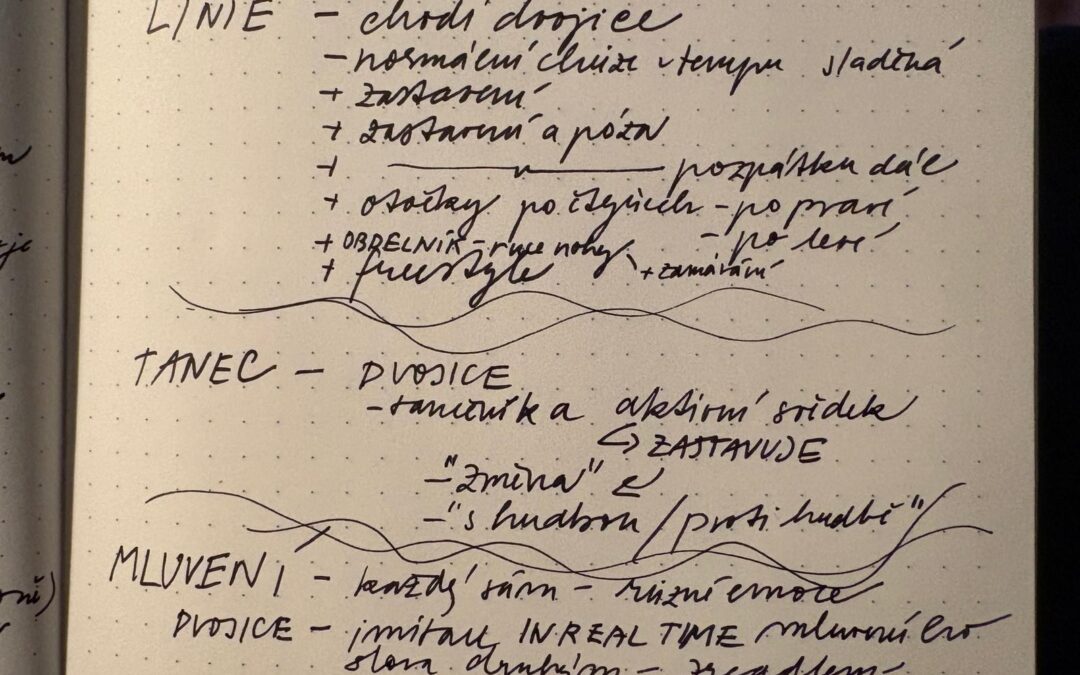 LINIE - chodí dvojice
- normální chůze v tempu sladěná
+ zastavení
+ zastavení a póza
+ pozpátku dál
+ otočky po čtyřech - po pravé
- po levé
+ OBDELNÍK - ruce nohy
+ zamávání
+ freestyle
TANEC - DVOJICE
- tanečník a aktivní svědek
↳ ZASTAVUJE
- "změna" ↙
- "s hudbou / proti hudbě"
MLUVENÍ - každý sám - různé emoce
DVOJICE - imitace IN REAL TIME mluveného
slova druhým - zrcadlení
je